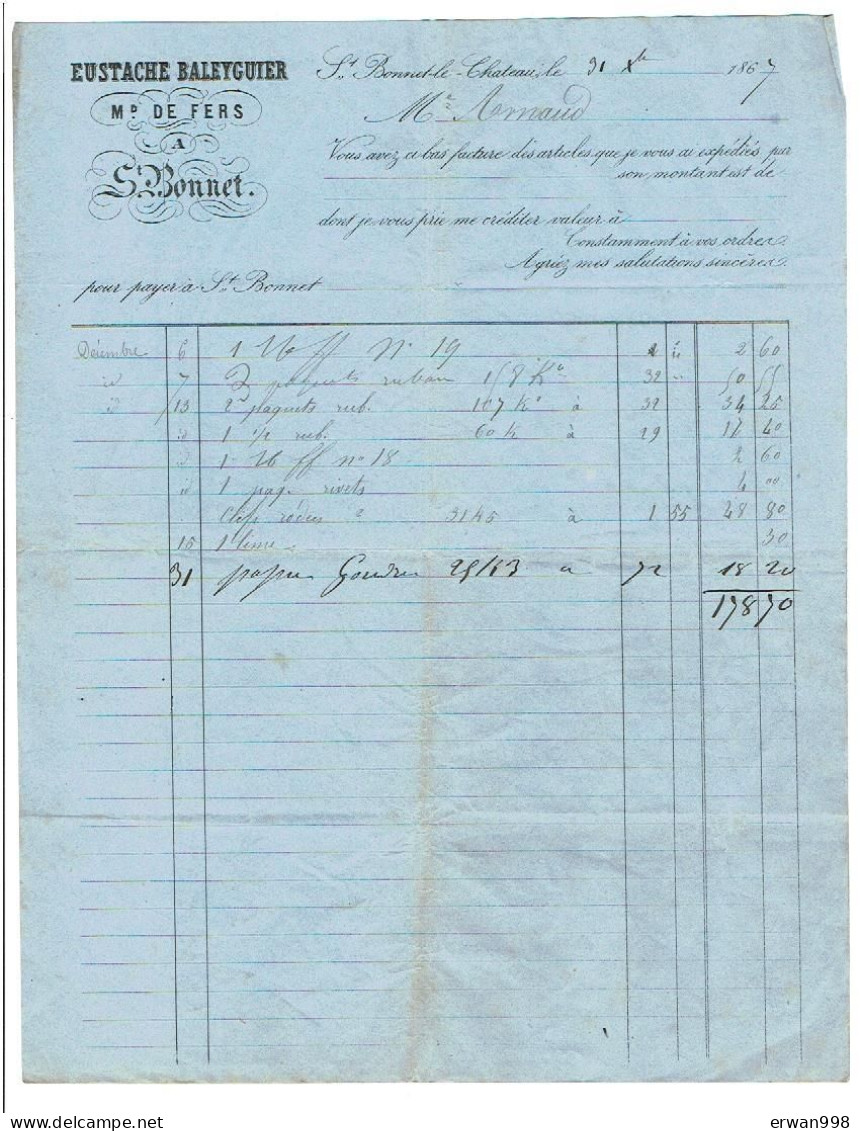 EUSTACHE BALEYGUIER
Md. DE FERS
A
St. Bonnet.
St. Bonnet-le-Chateau, le 31 Xbre 1867
Mr Arnaud
Vous avez ci bas facture des articles que je vous ai expédiés par
son montant est de
dont je vous prie me créditer valeur à
Constamment à vos ordres.
Agréez mes salutations sincères.
pour payer à St. Bonnet
Décembre 6 1 ff No 19 2 60
id 7 3 paquets ruban 158 Ko 32 50 55
id 13 2 paquets rub. 107 Ko à 32 34 25
id 1 1/2 rub. 60 K à 29 17 40
id 1 ff no 18 2 60
id 1 paq. rivets
31 45 à 1 55 48 80
15 1 lime 30
31 25/63 a 72 18 20
178 70
erwan998